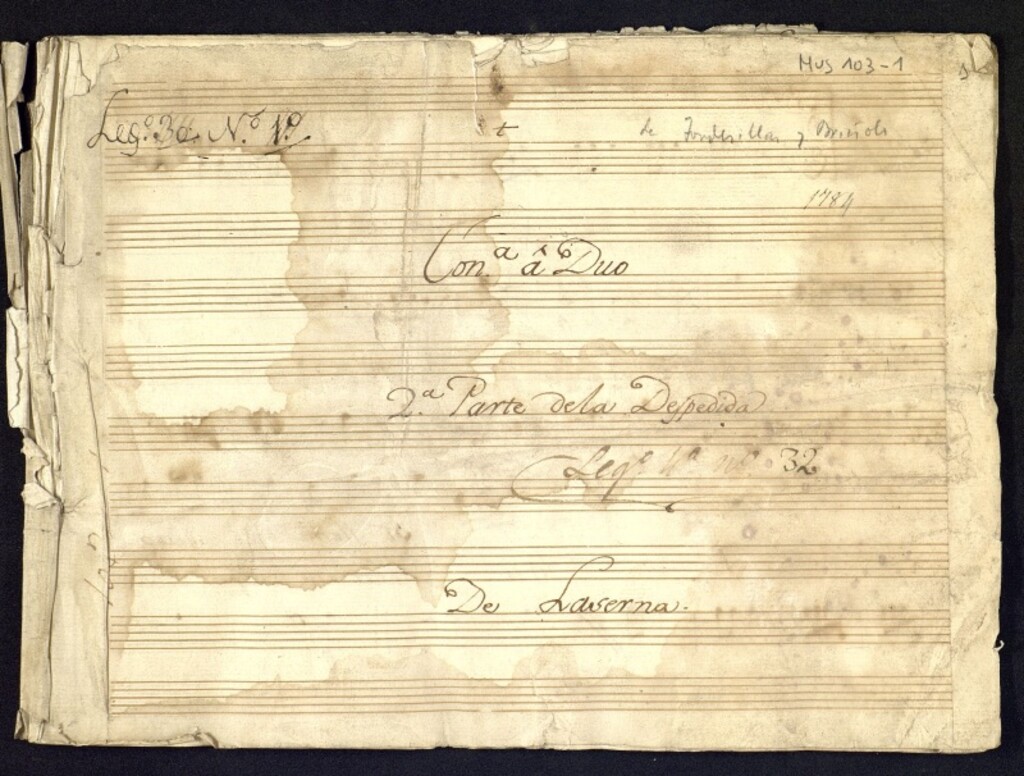 Mus 103-1
Leg.º 36. N.º 1º
t
de Tordesillas y Briñoli
1784
Ton.ª â Duo
2.ª Parte dela Despedida
Legº 4º nº 32
De Laserna.